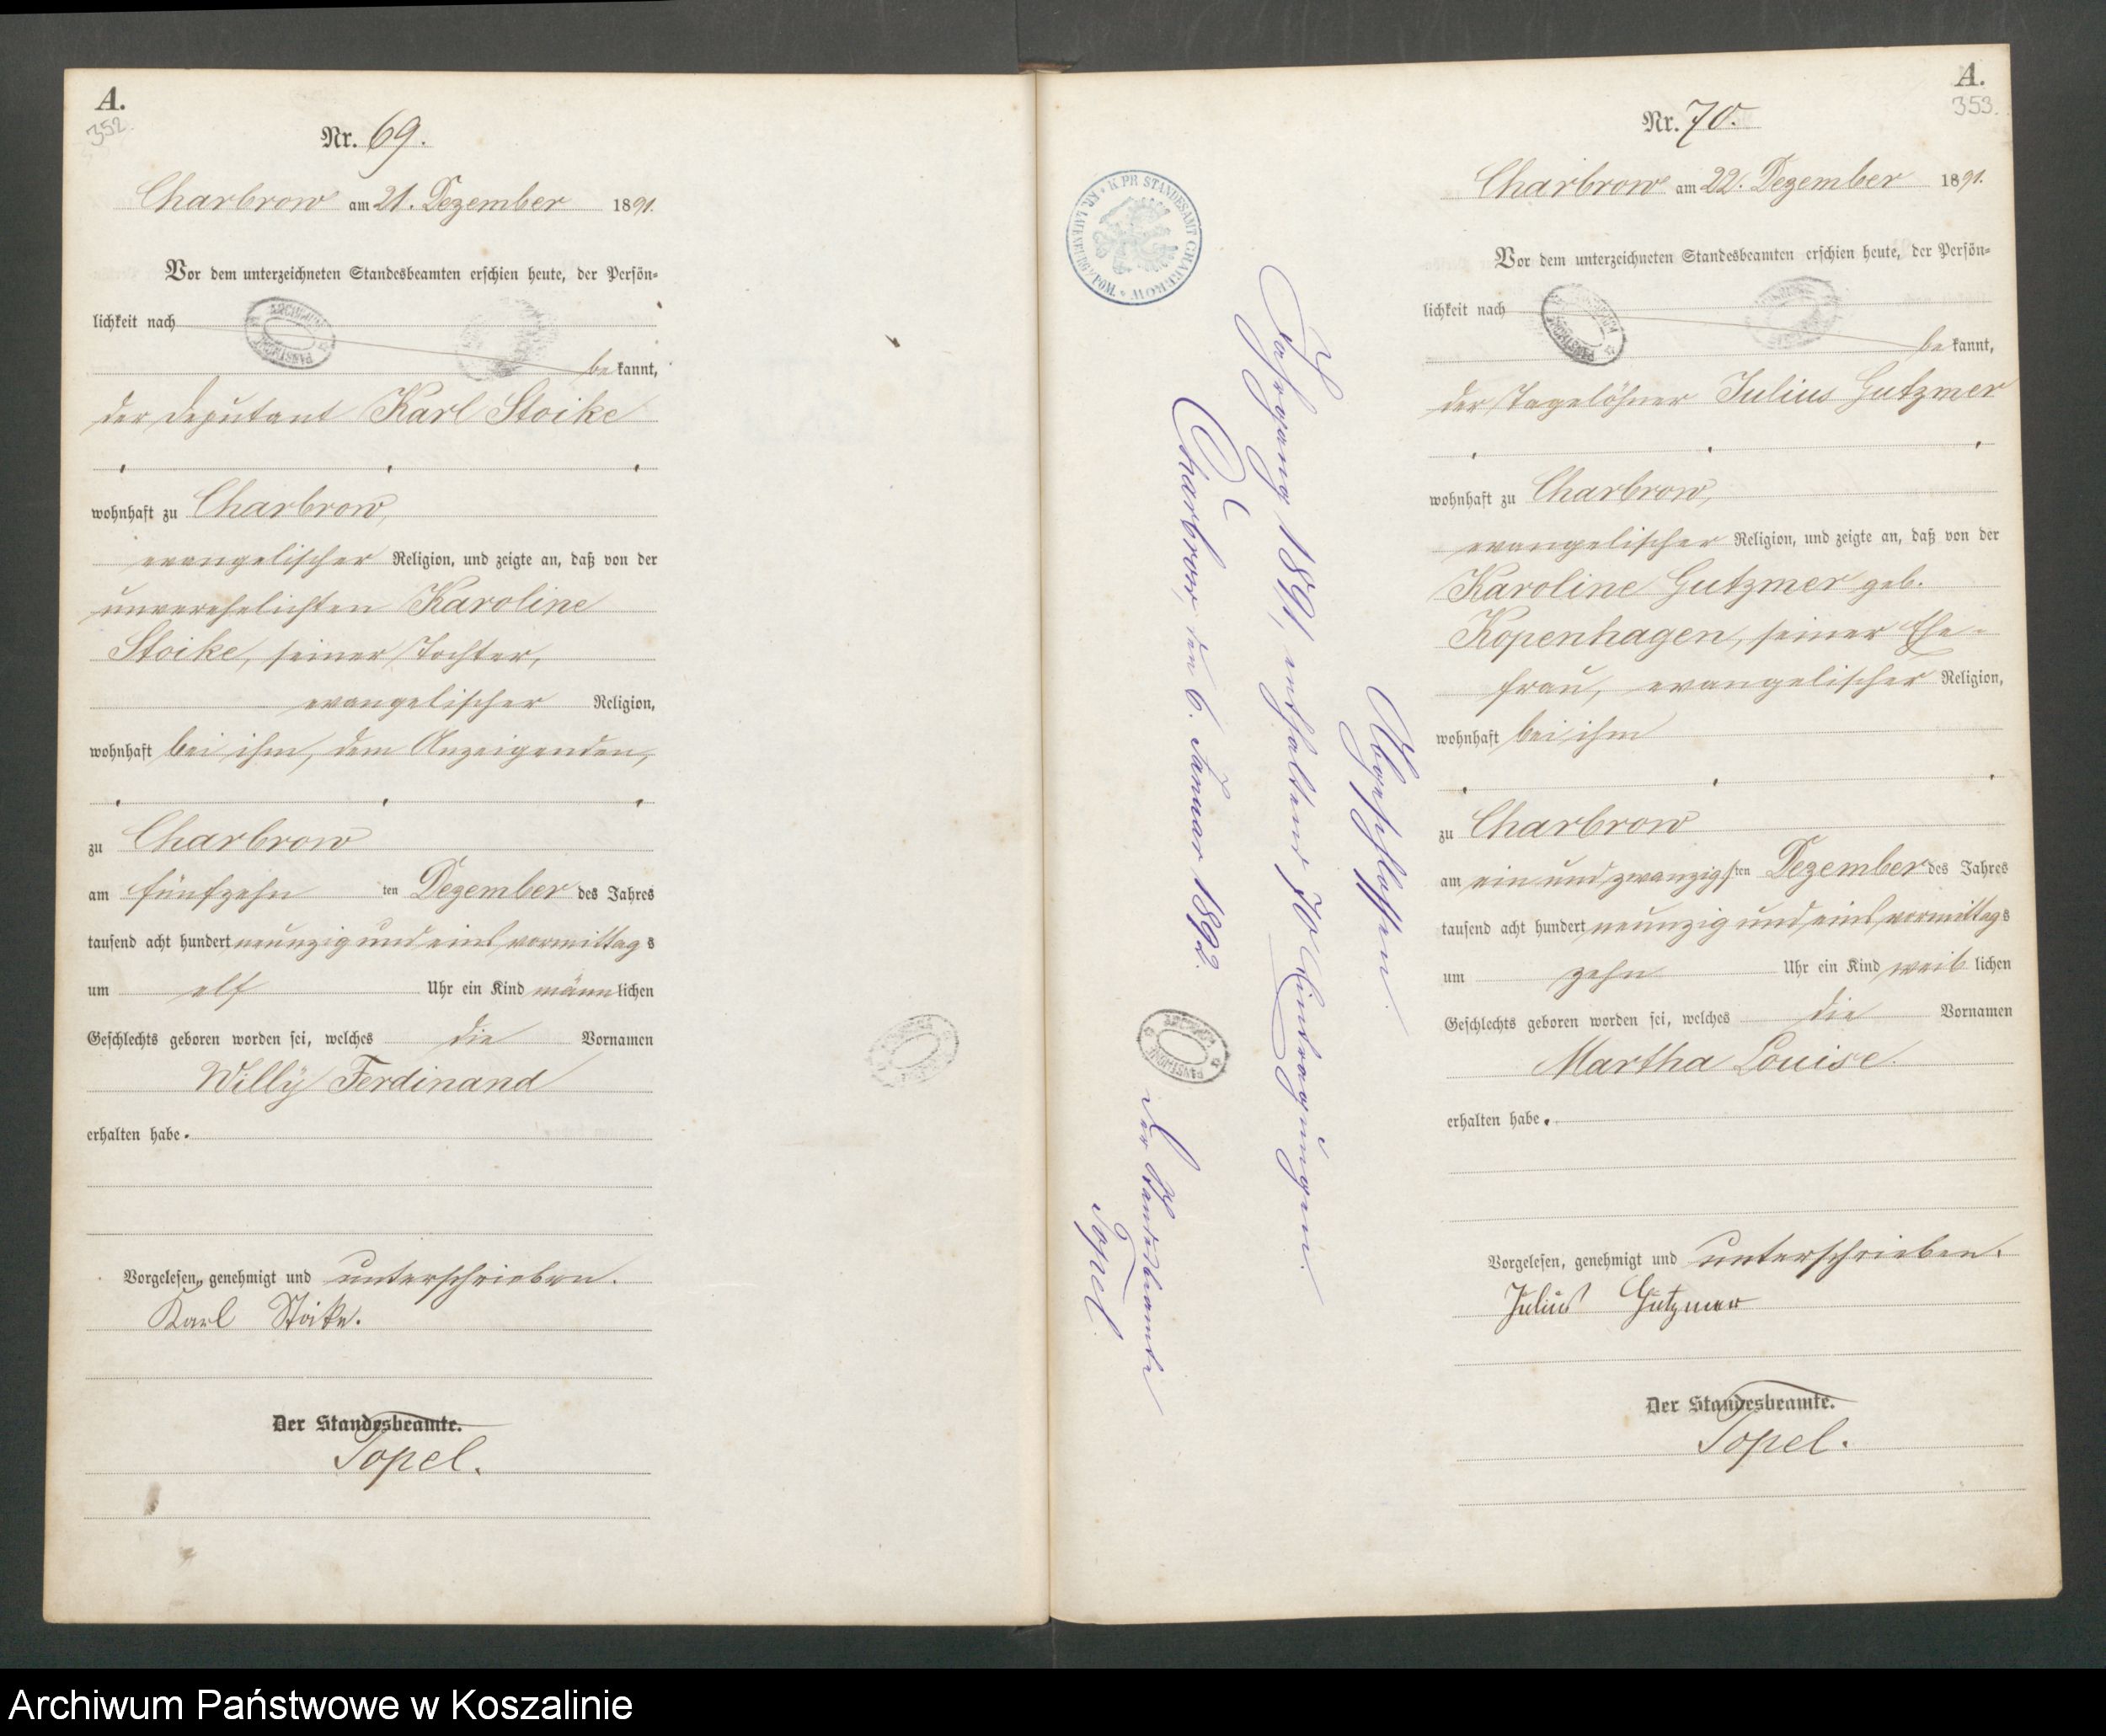 A.
352.
Nr. 69.
Charbrow am 21. Dezember 1891.
Vor dem unterzeichneten Standesbeamten erschien heute, der Persön-
lichkeit nach
bekannt,
der Deputant Karl Stoike
wohnhaft zu Charbrow,
evangelischer Religion, und zeigte an, daß von der
unverehelichten Karoline
Stoike, seiner Tochter,
evangelischer Religion,
wohnhaft bei ihm, dem Anzeigenden,
zu Charbrow
am fünfzehnten Dezember des Jahres
tausend acht hundert neunzig und eins vormittags
um elf Uhr ein Kind männlichen
Geschlechts geboren worden sei, welches die Vornamen
Willy Ferdinand
erhalten habe.
Vorgelesen, genehmigt und unterschrieben.
Karl Stoike.
Der Standesbeamte.
Topel.
K. PR. STANDESAMT CHARBROW * KR. LAUENBURG i/POM. *
Abgeschlossen.
Jahrgang 1891, enthaltend 70 Eintragungen.
Charbrow, den 6. Januar 1892.
Der Standesbeamte
Topel.
A.
353.
Nr. 70.
Charbrow am 22. Dezember 1891.
Vor dem unterzeichneten Standesbeamten erschien heute, der Persön-
lichkeit nach
bekannt,
der Tagelöhner Julius Gutzmer
wohnhaft zu Charbrow,
evangelischer Religion, und zeigte an, daß von der
Karoline Gutzmer geb.
Kopenhagen, seiner Ehe-
frau, evangelischer Religion,
wohnhaft bei ihm
zu Charbrow
am ein und zwanzigsten Dezember des Jahres
tausend acht hundert neunzig und eins vormittags
um zehn Uhr ein Kind weiblichen
Geschlechts geboren worden sei, welches die Vornamen
Martha Louise
erhalten habe.
Vorgelesen, genehmigt und unterschrieben.
Julius Gutzmer
Der Standesbeamte.
Topel.
Archiwum Państwowe w Koszalinie